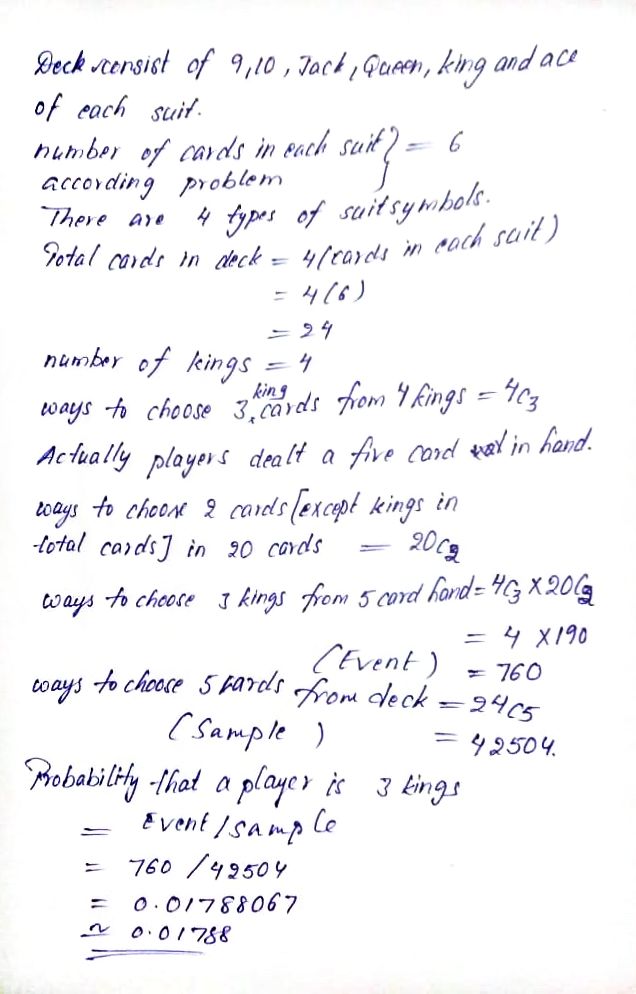 Deck consist of 9,10, Jack, Queen, king and ace
of each suit.
number of cards in each suit } = 6
according problem
There are 4 types of suitsymbols.
Total cards in deck = 4(cards in each suit)
= 4(6)
= 24
number of kings = 4
ways to choose 3 king cards from 4 kings = 4C3
Actually players dealt a five card in hand.
ways to choose 2 cards [except kings in
total cards] in 20 cards = 20C2
ways to choose 3 kings from 5 card hand = 4C3 X 20C2
= 4 X 190
(Event) = 760
ways to choose 5 cards from deck = 24C5
(Sample) = 42504.
Probability that a player is 3 kings
= Event/sample
= 760/42504
= 0.01788067
≈ 0.01788